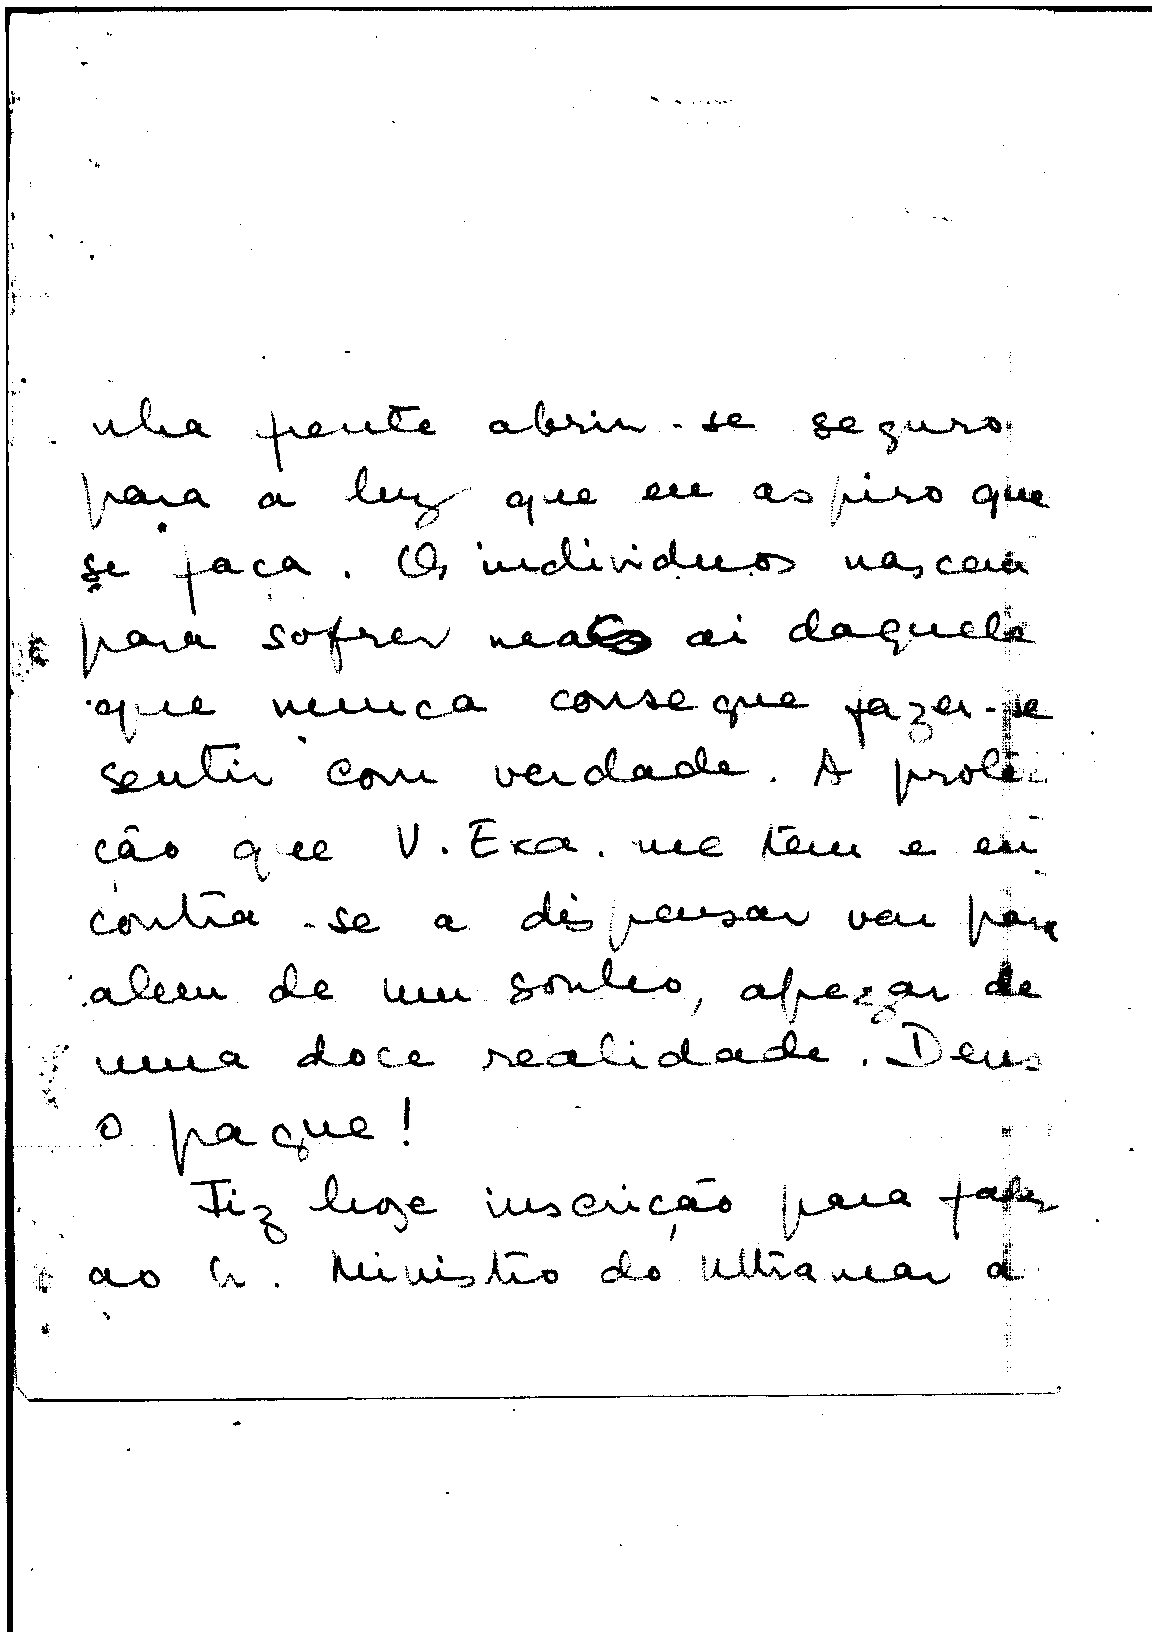 nha frente abrir-se seguro
para a luz que eu aspiro que
se faça. Os individuos nascem
para sofrer mas ai daquele
que nunca consegue fazer-se
sentir com verdade. A prote
ção que V. Exa. me tem e en
contra-se a dispensar vai para
alem de um sonho, apezar de
uma doce realidade. Deus
o pague!
Fiz hoje inscrição para falar
ao Sr. Ministro do Ultramar a